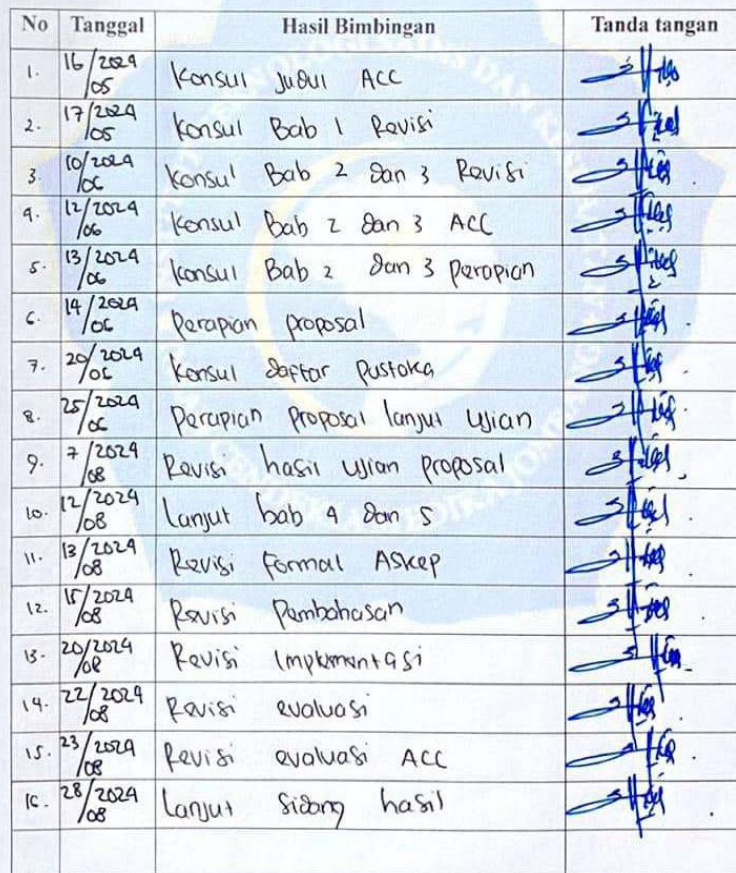 No Tanggal Hasil Bimbingan Tanda tangan
1. 16/2024/05 Konsul Judul ACC
2. 17/2024/05 Konsul Bab 1 Revisi
3. 10/2024/06 Konsul Bab 2 dan 3 Revisi
4. 12/2024/06 Konsul Bab 2 dan 3 ACC
5. 13/2024/06 Konsul Bab 2 dan 3 Perapian
6. 14/2024/06 Perapian proposal
7. 20/2024/06 Konsul Daftar Pustaka
8. 25/2024/06 Perapian Proposal lanjut Ujian
9. 7/2024/08 Revisi hasil Ujian proposal
10. 12/2024/08 Lanjut bab 4 dan 5
11. 13/2024/08 Revisi Format ASKep
12. 15/2024/08 Revisi Pembahasan
13. 20/2024/08 Revisi Implementasi
14. 22/2024/08 Revisi evaluasi
15. 23/2024/08 Revisi evaluasi ACC
16. 28/2024/08 Lanjut Sidang hasil